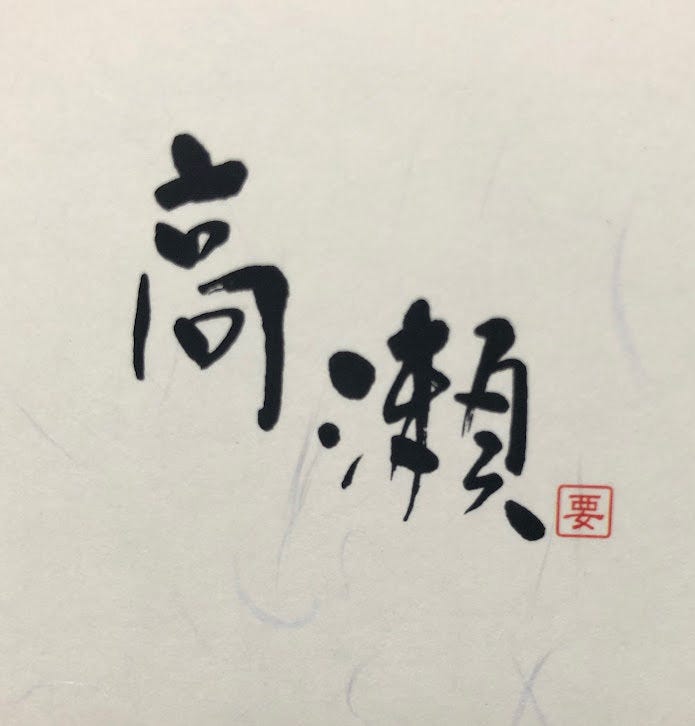 高瀬
要